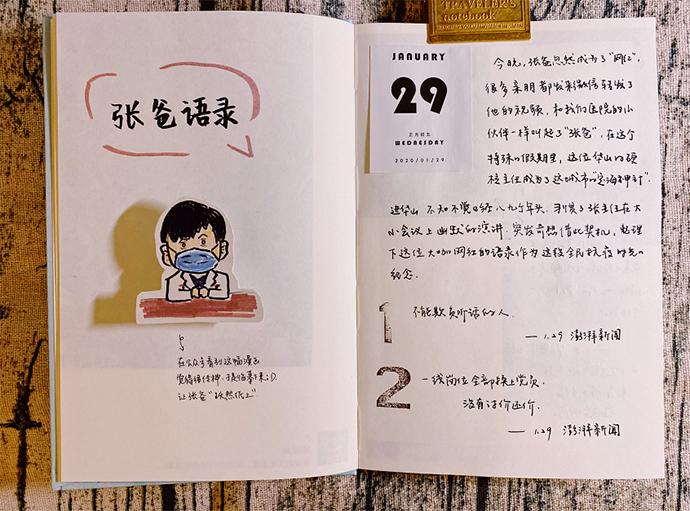 张爸语录
在公众号看到这幅漫画
觉得很传神，于是临摹下来:D
让张爸“跃然纸上”
TRAVELER'S
notebook
JANUARY
29
正月初五
WEDNESDAY
2020/01/29
今晚，张爸忽然成为了“网红”，
很多亲朋都发来微信转发了
他的视频，和我们医院的小
伙伴一样叫起了“张爸”，在这个
特殊的假期里，这位华山的硬
核主任成为了这城市的“定海神针”。
进华山 不知不觉已经八九个年头，习惯了张主任在大
小会议上幽默的演讲。突发奇想借此契机，整理
下这位大咖网红的语录作为这段全民抗疫时光的
纪念。
1 不能欺负听话的人。
— 1.29 澎湃新闻
2 一线岗位全部换上党员
没有讨价还价.
— 1.29 澎湃新闻